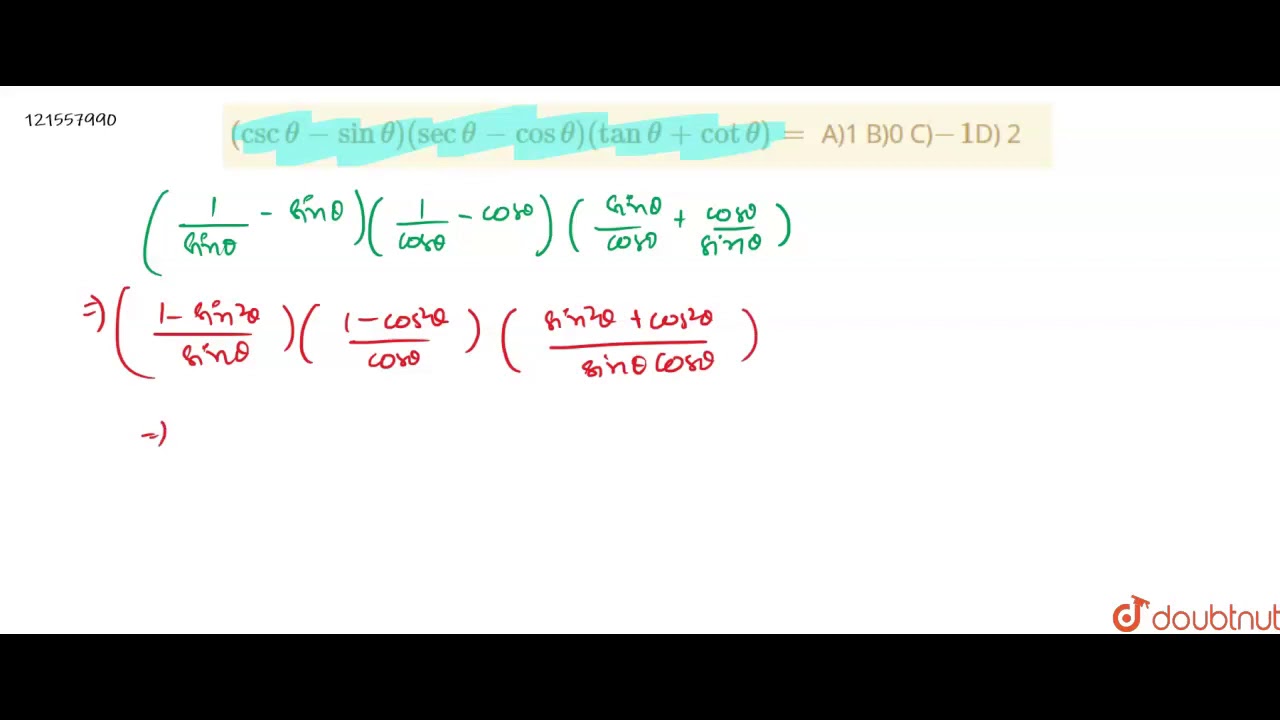 121557990
(csc θ − sin θ)(sec θ − cos θ)(tan θ + cot θ) = A)1 B)0 C)−1D) 2
(1/sinθ - sinθ)(1/cosθ - cosθ)(sinθ/cosθ + cosθ/sinθ)
⇒ (1-sin²θ/sinθ)(1-cos²θ/cosθ)(sin²θ+cos²θ/sinθcosθ)
⇒
doubtnut